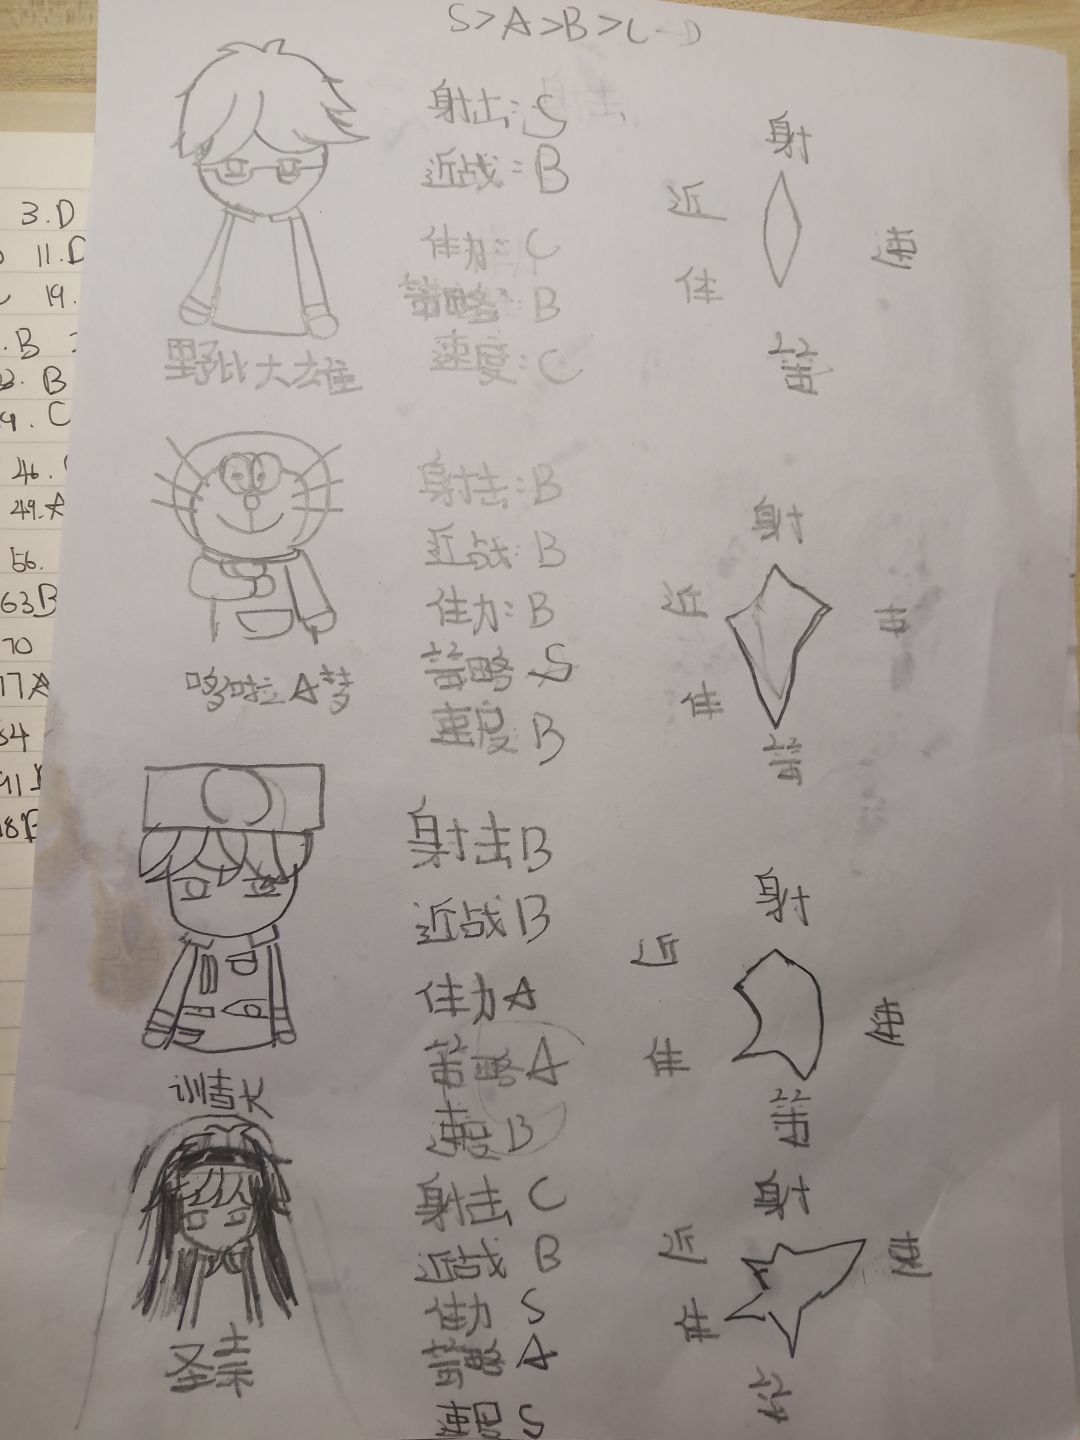 S>A>B>C-D
射击:S
近战:B
体力:C
策略:B
速度:C
野比大雄
射
近
速
体
策
射击:B
近战:B
体力:B
策略 S
速度 B
哆啦A梦
射
近
速
体
策
射击B
近战B
体力A
策略A
速度B
射
近
速
体
策
射击 C
近战 B
体力 S
策略 A
速度 S
射
近
速
体
策
3.D
11.D
19.
.B
B
C
46.
49.A
56.
63B
70
77A
84
91
98B